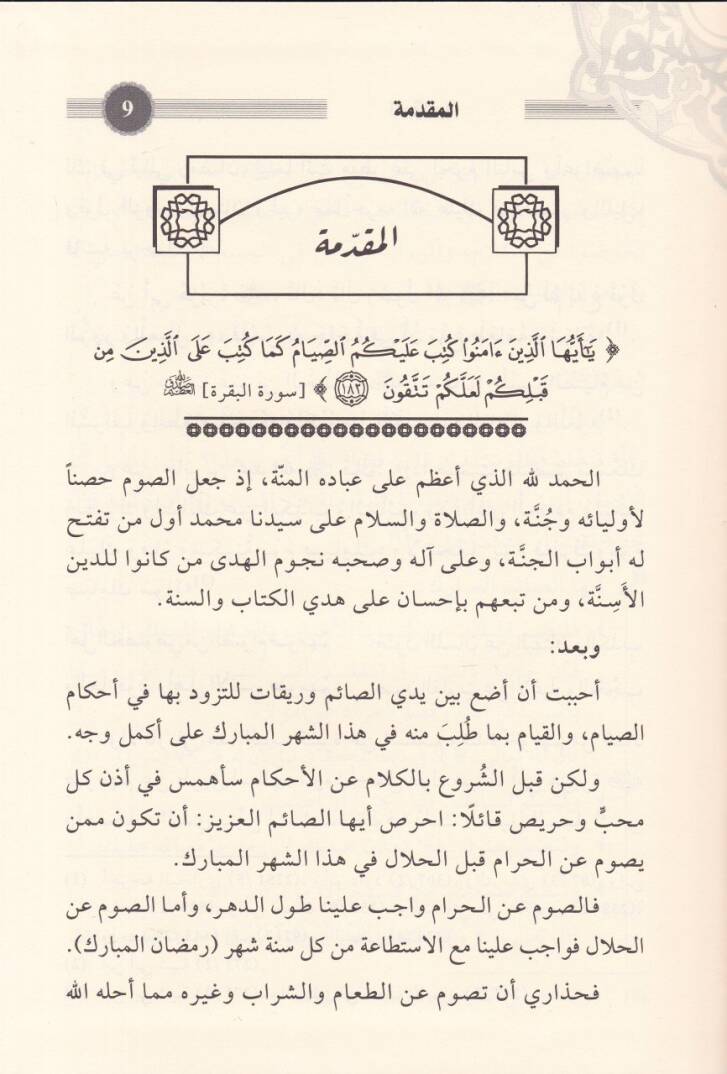 المقدمة
9
المقدّمة
﴿ يَٰٓأَيُّهَا ٱلَّذِينَ ءَامَنُوا۟ كُتِبَ عَلَيْكُمُ ٱلصِّيَامُ كَمَا كُتِبَ عَلَى ٱلَّذِينَ مِن
قَبْلِكُمْ لَعَلَّكُمْ تَتَّقُونَ ١٨٣ ﴾ [سورة البقرة]
الحمد لله الذي أعظم على عباده المنّة، إذ جعل الصوم حصناً
لأوليائه وجُنَّة، والصلاة والسلام على سيدنا محمد أول من تفتح
له أبواب الجنَّة، وعلى آله وصحبه نجوم الهدى من كانوا للدين
الأَسِنَّة، ومن تبعهم بإحسان على هدي الكتاب والسنة.
وبعد:
أحببت أن أضع بين يدي الصائم وريقات للتزود بها في أحكام
الصيام، والقيام بما طُلِبَ منه في هذا الشهر المبارك على أكمل وجه.
ولكن قبل الشُروع بالكلام عن الأحكام سأهمس في أذن كل
محبٍّ وحريص قائلًا: احرص أيها الصائم العزيز: أن تكون ممن
يصوم عن الحرام قبل الحلال في هذا الشهر المبارك.
فالصوم عن الحرام واجب علينا طول الدهر، وأما الصوم عن
الحلال فواجب علينا مع الاستطاعة من كل سنة شهر (رمضان المبارك).
فحذاري أن تصوم عن الطعام والشراب وغيره مما أحله الله